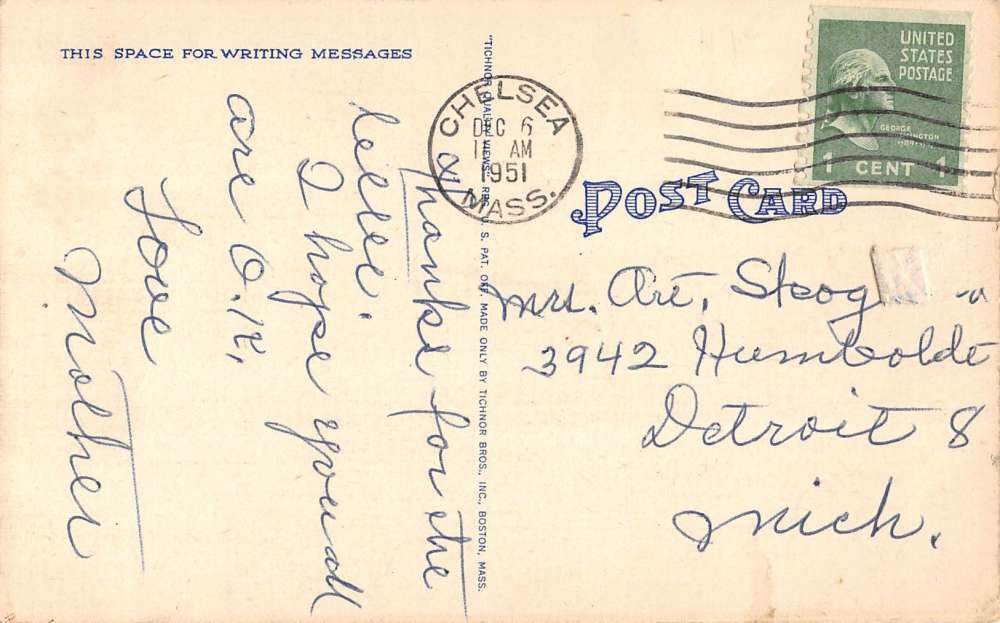 THIS SPACE FOR WRITING MESSAGES
Thanks for the
letter.
I hope you all
are O.K.
Love
Mother
"TICHNOR QUALITY VIEWS" REG. U. S. PAT. OFF. MADE ONLY BY TICHNOR BROS., INC., BOSTON, MASS.
CHELSEA
DEC 6
AM
1951
MASS.
UNITED
STATES
POSTAGE
GEORGE
WASHINGTON
1 CENT 1
POST CARD
Mrs. Art. Skog
3942 Humboldt
Detroit 8
Mich.